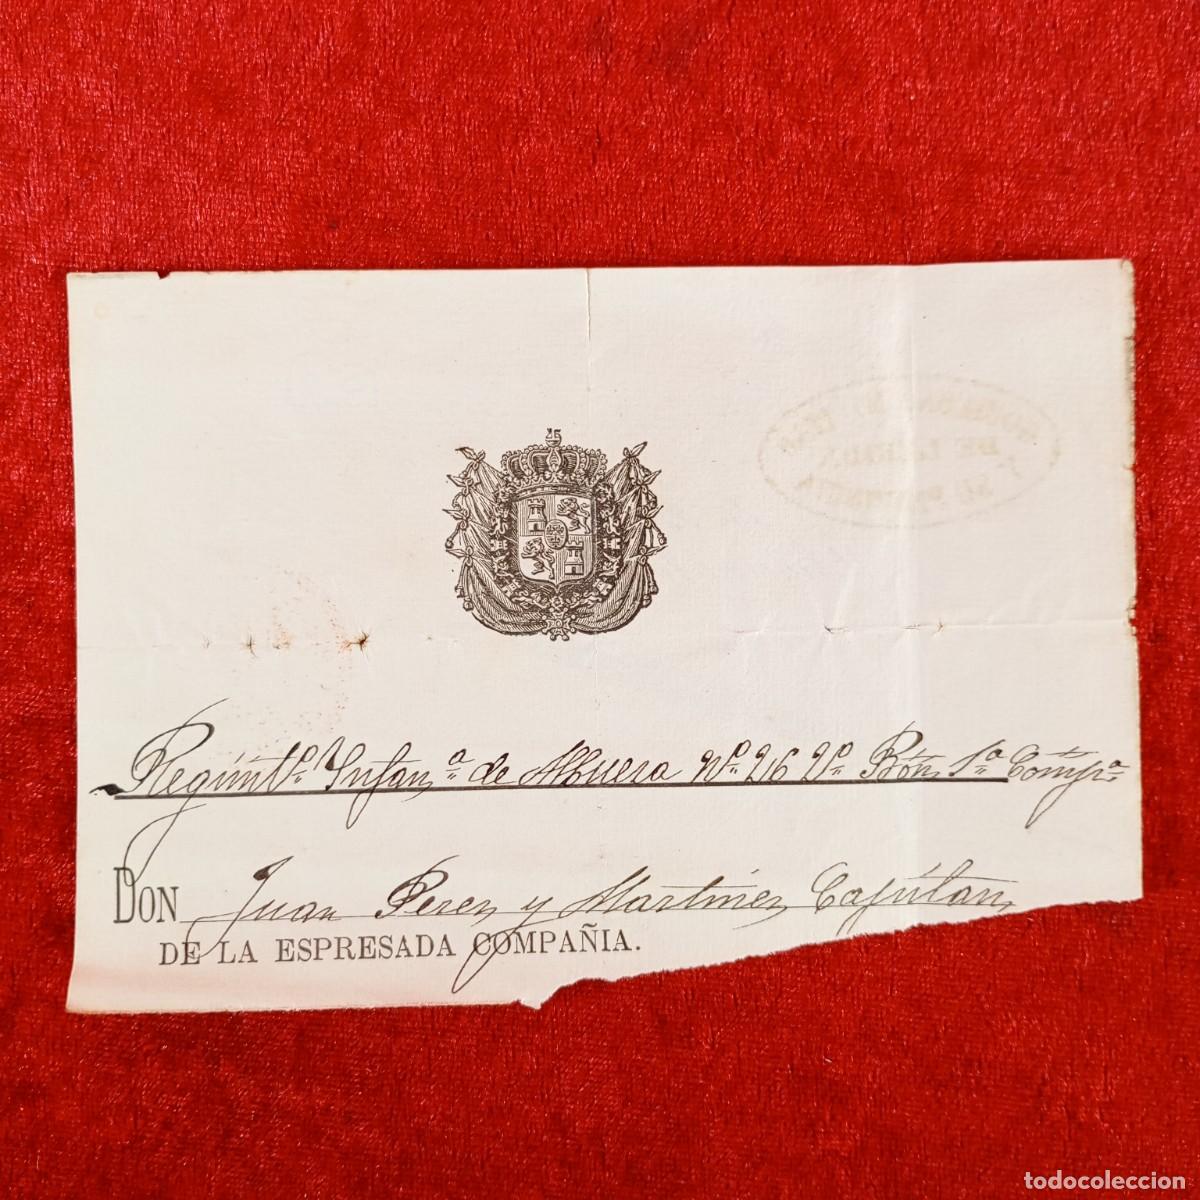 Regimto. Infana. de Albuera No. 26 2o. Bón 1a. Compa.
DON Juan Perez y Martinez Capitan
DE LA ESPRESADA COMPAÑIA.
todocoleccion